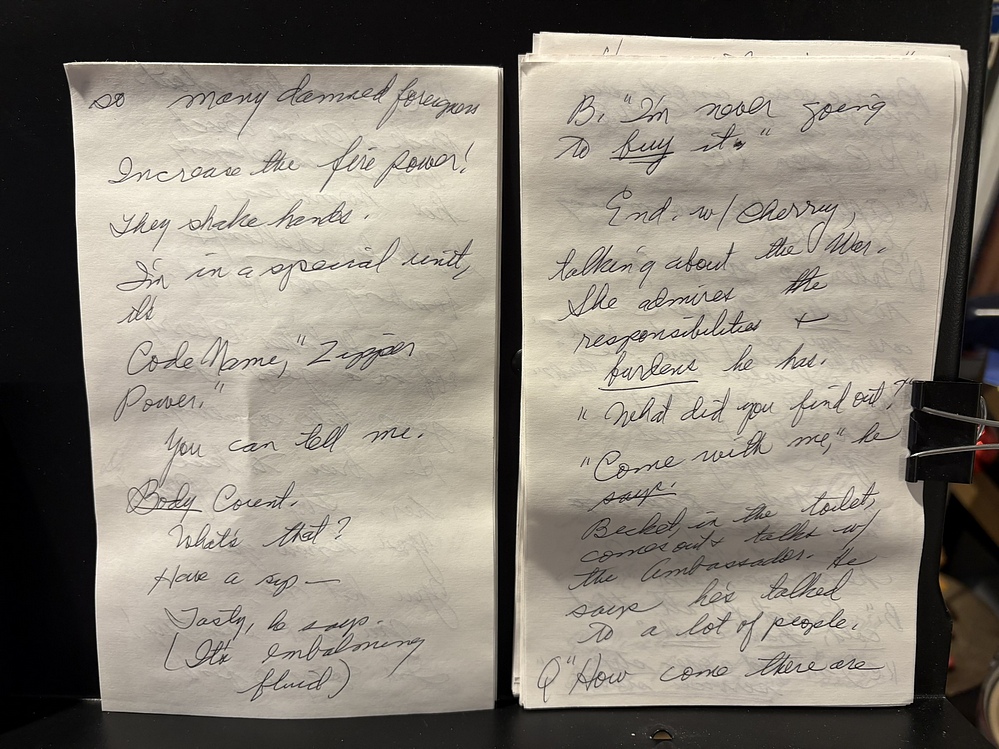 so many damned foreigners
Increase the fire power!
They shake hands.
I'm in a special unit,
it's
Code Name, "Zipper
Power."
You can tell me.
Body Count.
What's that?
Have a sip —
Tasty, he says.
(It's embalming
fluid)
B. "I'm never going
to buy it."
End. w/ Cherry,
talking about the War.
She admires the
responsibilities +
burdens he has.
"What did you find out?"
"Come with me," he
says.
Becket in the toilet,
comes out + talks w/
the Ambassador. He
says he's talked
to a lot of people.
Q "How come there are